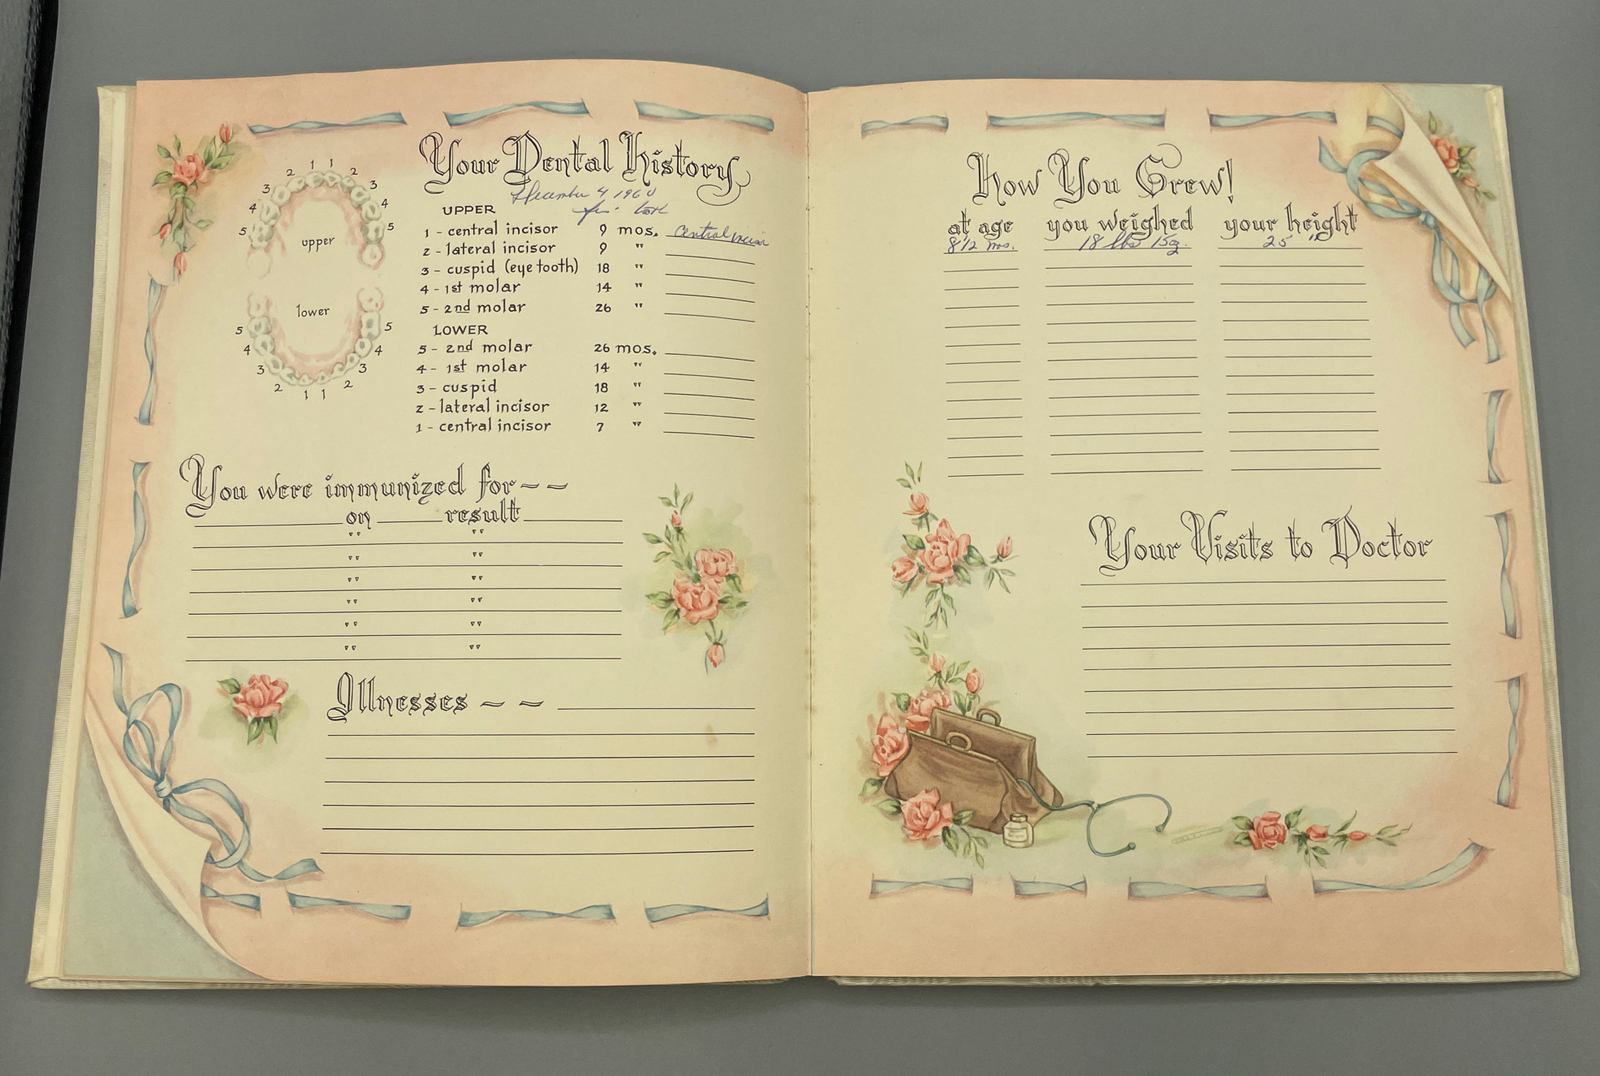 Your Dental History
December 4 1960
tooth
UPPER
1 - central incisor 9 mos. Central incisor
2 - lateral incisor 9 "
3 - cuspid (eye tooth) 18 "
4 - 1st molar 14 "
5 - 2nd molar 26 "
LOWER
5 - 2nd molar 26 mos.
4 - 1st molar 14 "
3 - cuspid 18 "
2 - lateral incisor 12 "
1 - central incisor 7 "
1 1
2 2
3 3
4 4
5 5
upper
lower
5 5
4 4
3 3
2 2
1 1
You were immunized for--
on result
" "
" "
" "
" "
" "
" "
Illnesses --
How You Grew!
at age you weighed your height
8 1/2 mos. 18 lbs 15g. 25 "
Your Visits to Doctor